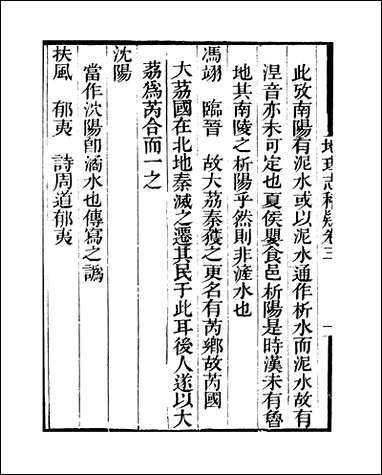 地理志稽疑卷三
一
此攷南陽有泥水或以泥水通作析水而泥水故有
涅音亦未可定也夏侯嬰食邑析陽是時漢未有魯
地其南陵之析陽乎然則非漄水也
馮翊　臨晉　故大荔秦獲之更名有芮鄉故芮國
大荔國在北地秦滅之遷其民于此耳後人遂以大
荔爲芮合而一之
沈陽
當作沇陽卽滴水也傳寫之譌
扶風　郁夷　詩周道郁夷